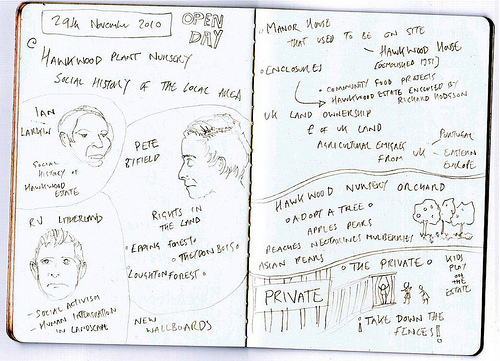 29th November 2010
OPEN DAY
@
HAWKWOOD PLANT NURSERY
SOCIAL HISTORY OF THE LOCAL AREA
IAN
LARKIN
SOCIAL
HISTORY OF
HAWKWOOD
ESTATE
PETE
BYFIELD
RIGHTS IN
THE LAND
• EPPING FOREST •
• THEYDON BOIS •
LOUGHTON FOREST •
NEW
WALLBOARDS
RU LITHERLAND
- SOCIAL ACTIVISM
- HUMAN INTERVENTION
IN LANDSCAPE
• MANOR HOUSE
THAT USED TO BE ON SITE
- HAWKWOOD HOUSE
[DEMOLISHED 1951]
• ENCLOSURES
• COMMUNITY FOOD PROJECTS
HAWKWOOD ESTATE ENCLOSED BY
RICHARD HODGSON
UK LAND OWNERSHIP
£ OF UK LAND
AGRICULTURAL EMIGRES
FROM UK
PORTUGAL
EASTERN
EUROPE
HAWKWOOD NURSERY ORCHARD
• ADOPT A TREE •
APPLES PEARS
PEACHES NECTARINES MULBERRIES
ASIAN PEARS
• THE PRIVATE •
KIDS
PLAY
ON THE
ESTATE
PRIVATE
¡ TAKE DOWN THE
FENCES !